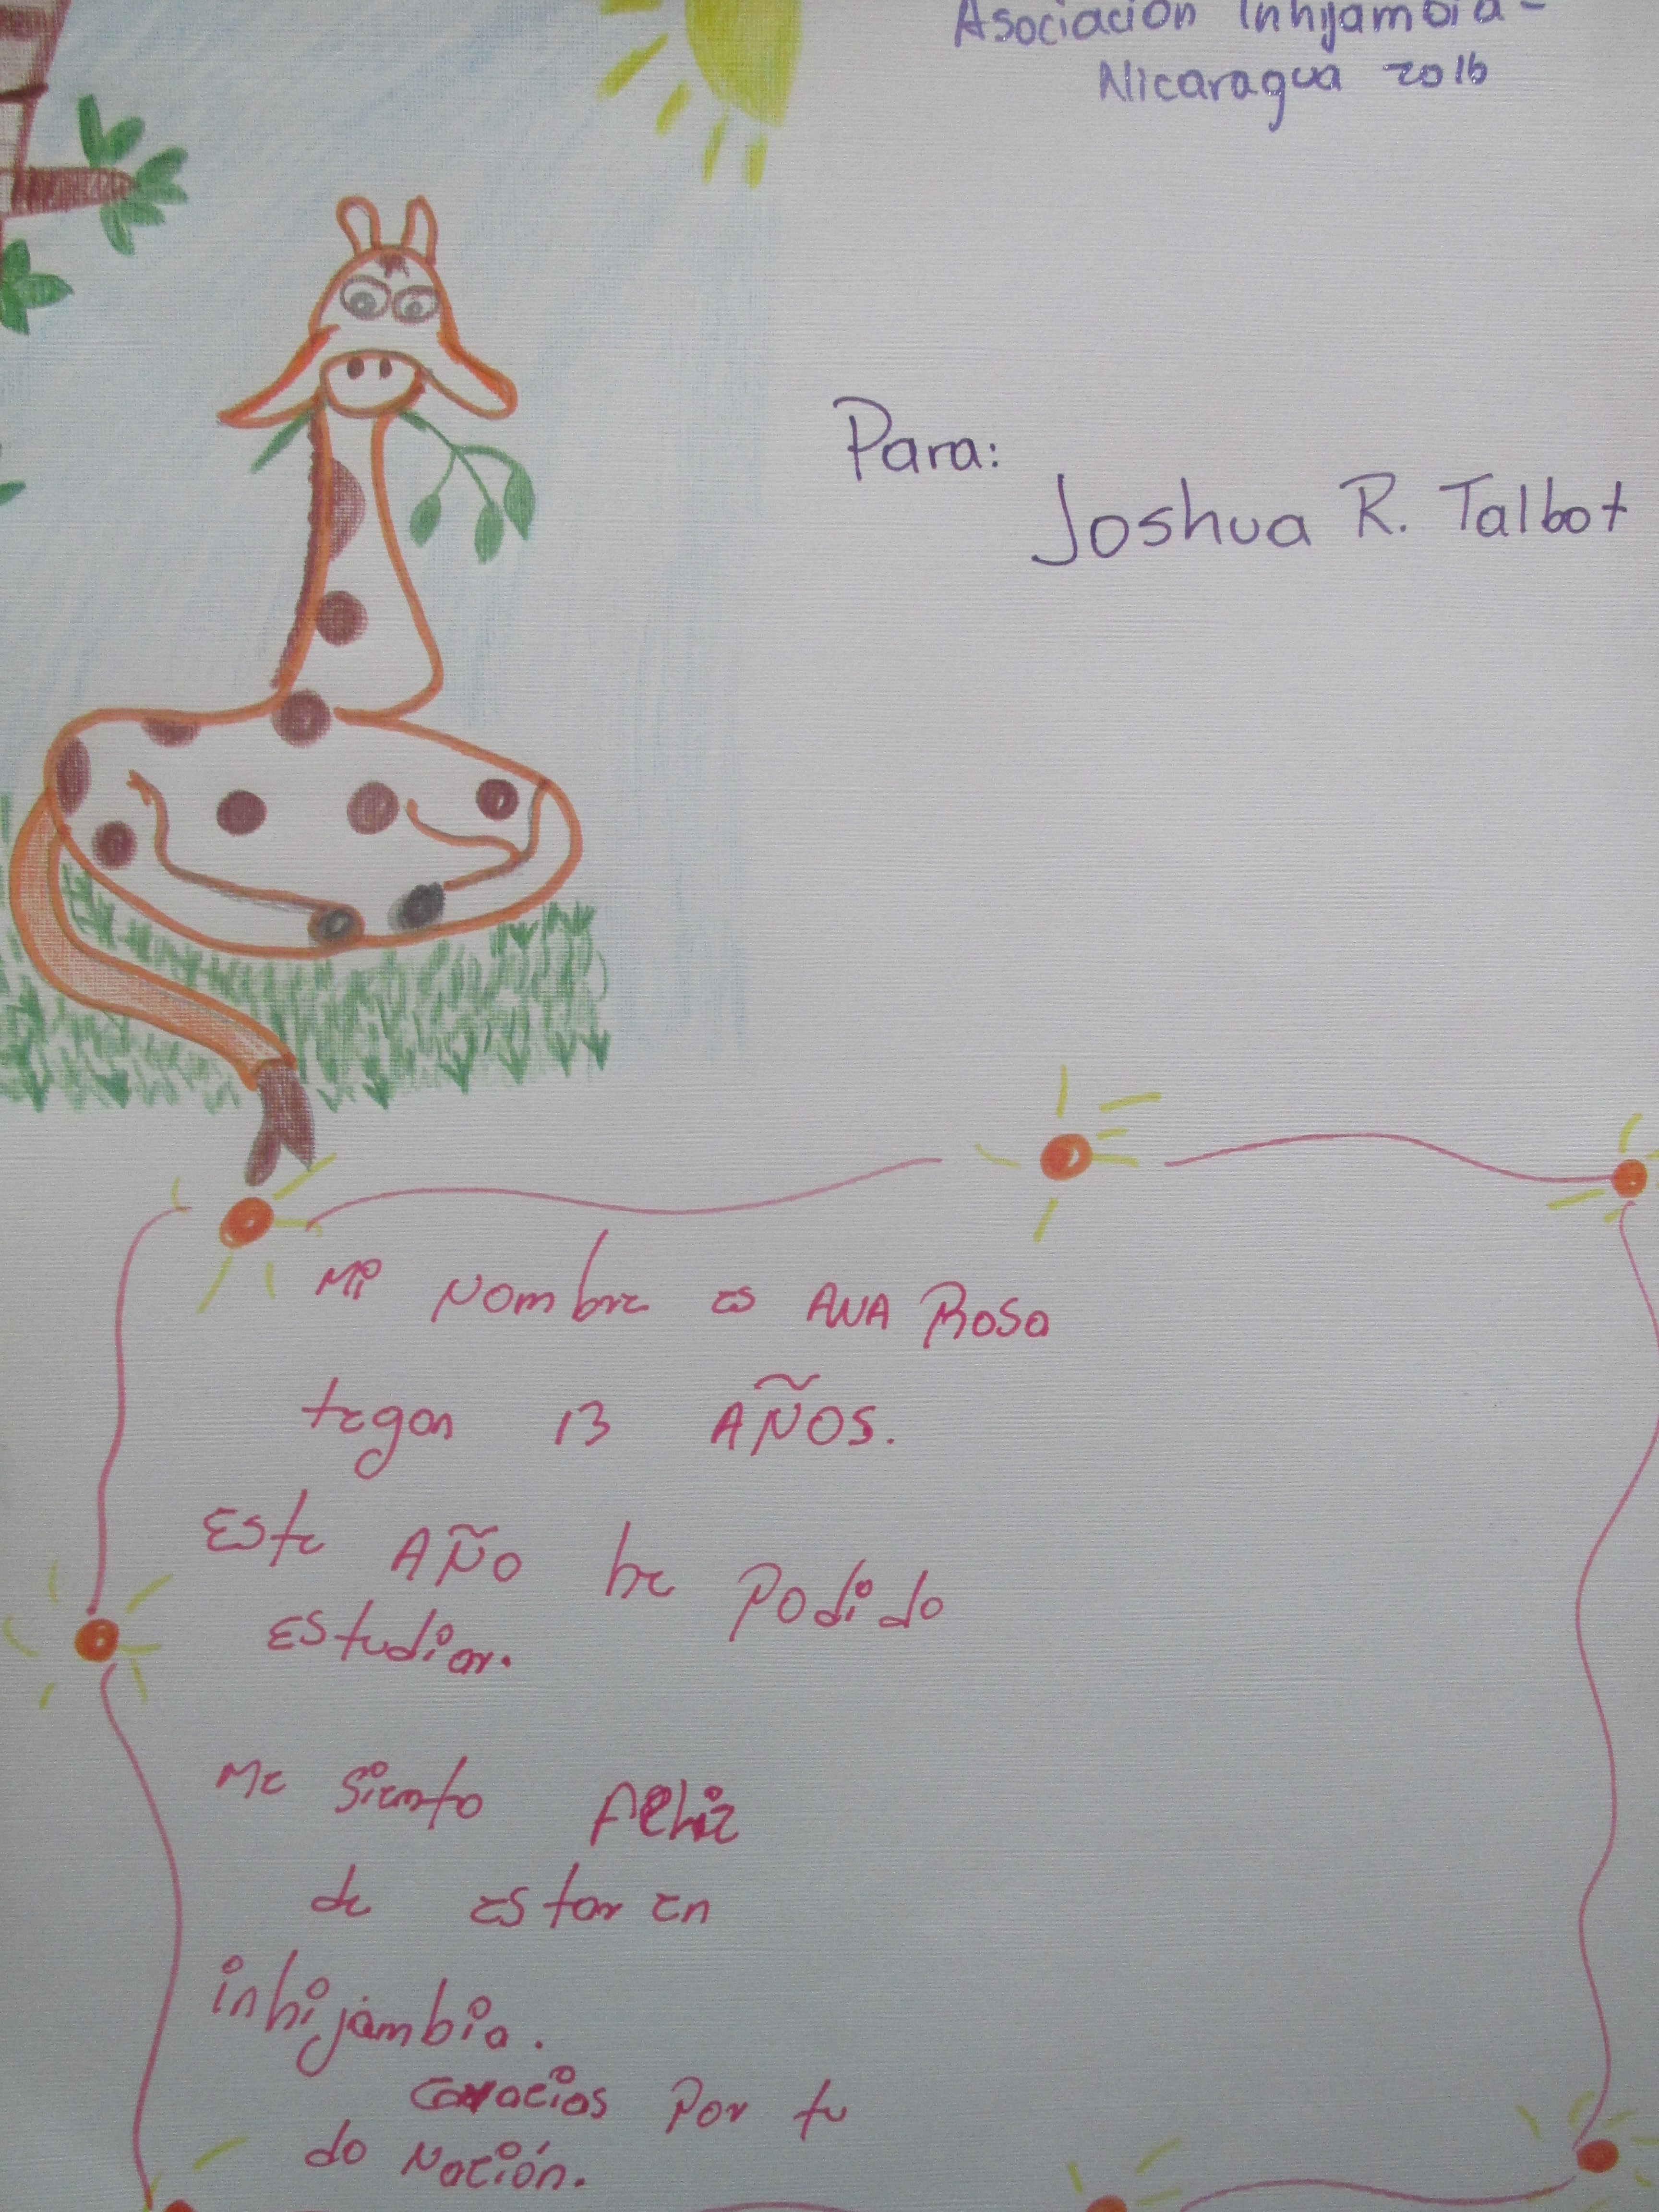 Asociación Inhijambia -
Nicaragua 2016
Para:
Joshua R. Talbot
Mi Nombre es ANA Rosa
tegon 13 AÑOS.
Este AÑo he Podido
Estudiar.
Me siento Feliz
de estar en
inhijambia.
Gracias Por tu
do Nación.